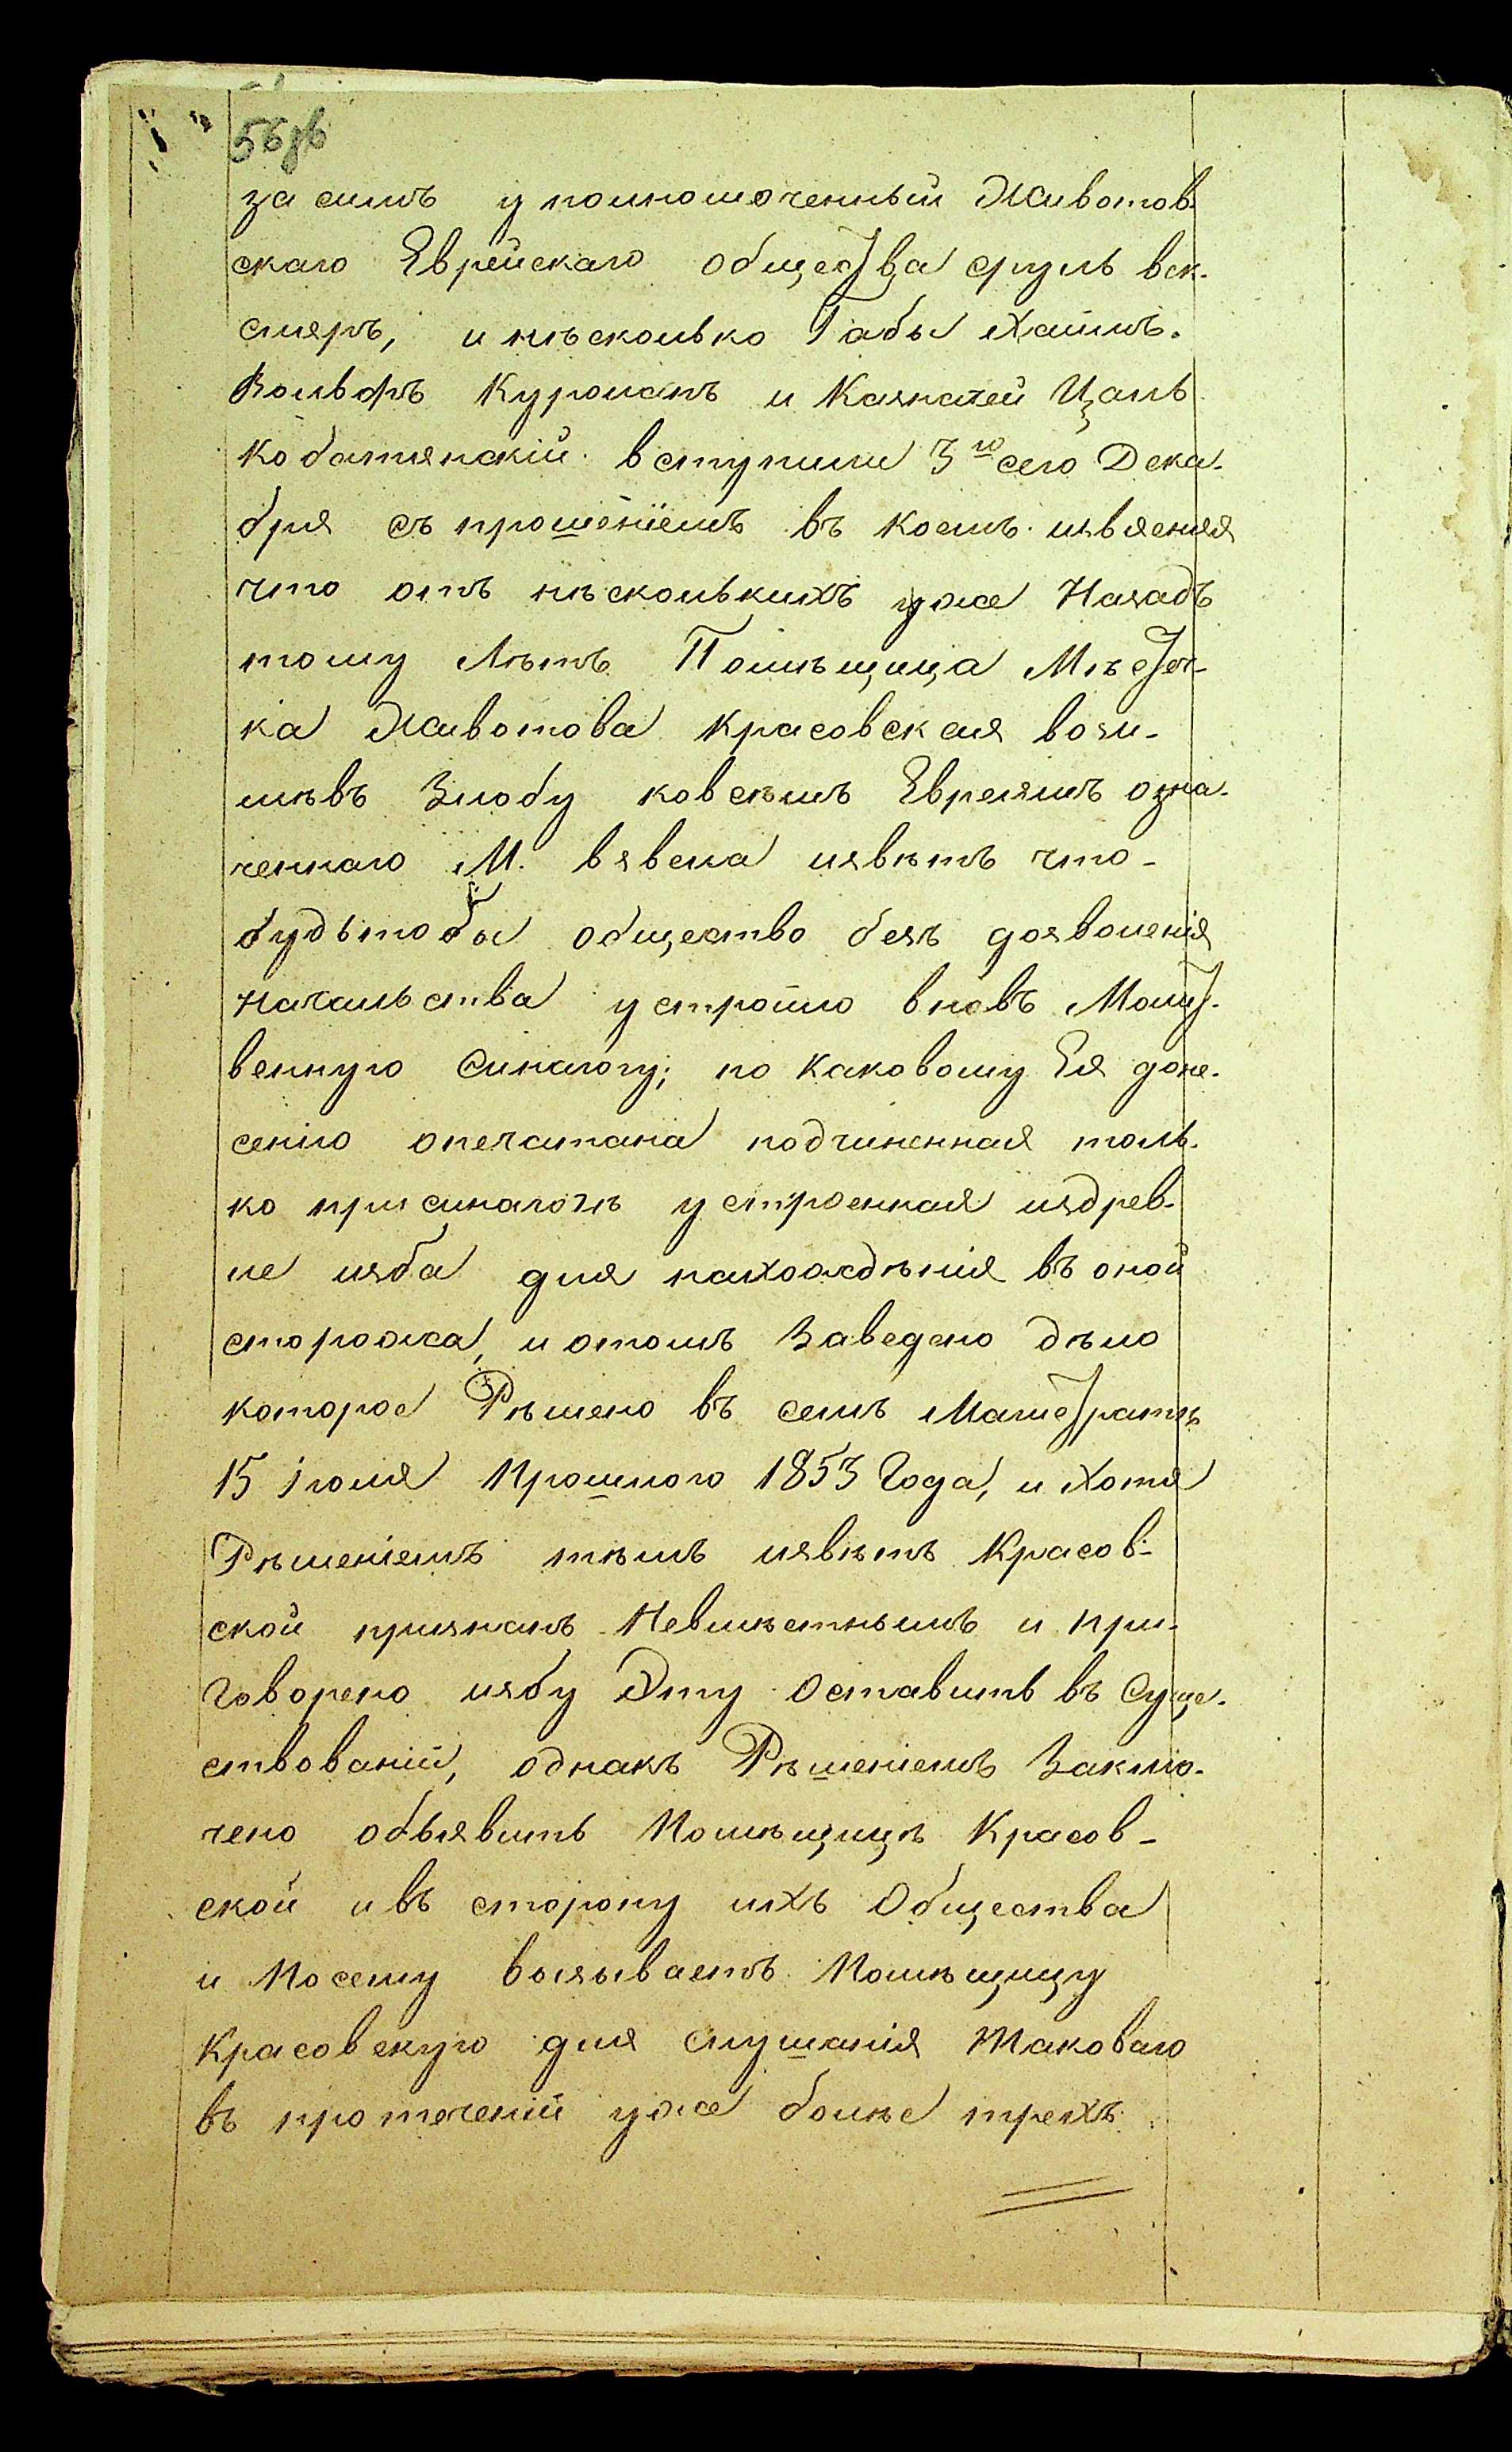 56 об
за симъ уполномоченный Животов-
скаго Еврейскаго общества сруль век-
слеръ, и нѣсколько Габы Хаимъ-
Вольфъ Курманъ и Казначей Цаль
Кобатянскій вступили 3го сего Дека-
бря съ прошеніемъ въ коемъ изъясняя
что отъ нѣсколькихъ уже Назадъ
тому Лѣтъ Помѣщица Мѣстеч-
ка Животова Красовская возы-
мѣвъ Злобу ковсѣмъ Евреямъ озна-
ченнаго М. взвела извѣтъ что-
будьтобы общество безъ дозволенія
Начальства устроило вновь Молит-
венную Синагогу; по каковому Ея доне-
сенію опечатана подчиненная толь-
ко при синагогѣ устроенная издрев-
ле изба для нахожденія въ оной
сторожа, и отомъ Заведено дѣло
которое Рѣшено въ семъ Магистратѣ
15 Іюля Прошлого 1853 Года, и Хотя
Рѣшеніемъ тѣмъ извѣтъ Красов-
ской признанъ Невмѣстнымъ и при-
говорено избу Эту Оставить въ Суще-
ствованій, однакъ Рѣшеніемъ Заклю-
чено объявить Помѣщицѣ Красов-
ской ивъ сторону ихъ Общества
и Посему вызываетъ Помѣщицу
Красовскую для слушанія Таковаго
въ протеченій уже болѣе трехъ